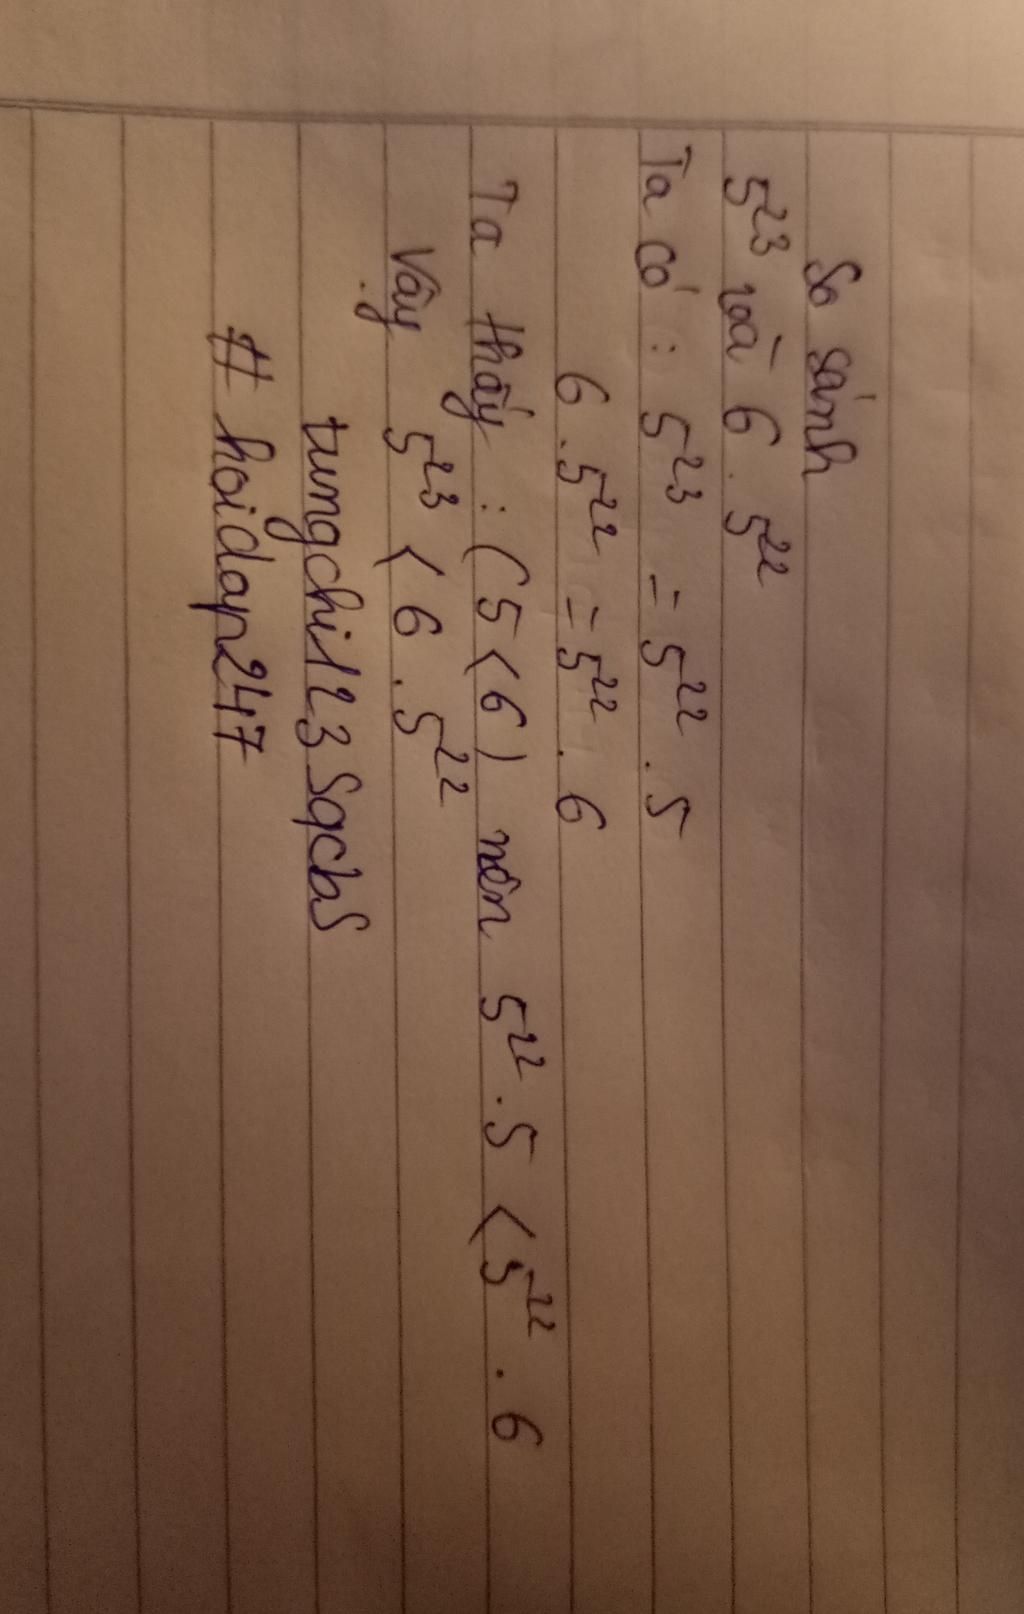 So sánh
5²³ và 6 . 5²²
Ta có : 5²³ = 5²² . 5
6 . 5²² = 5²² . 6
Ta thấy : (5 < 6) nên 5²² . 5 < 5²² . 6
Vậy 5²³ < 6 . 5²²
# hoidap247